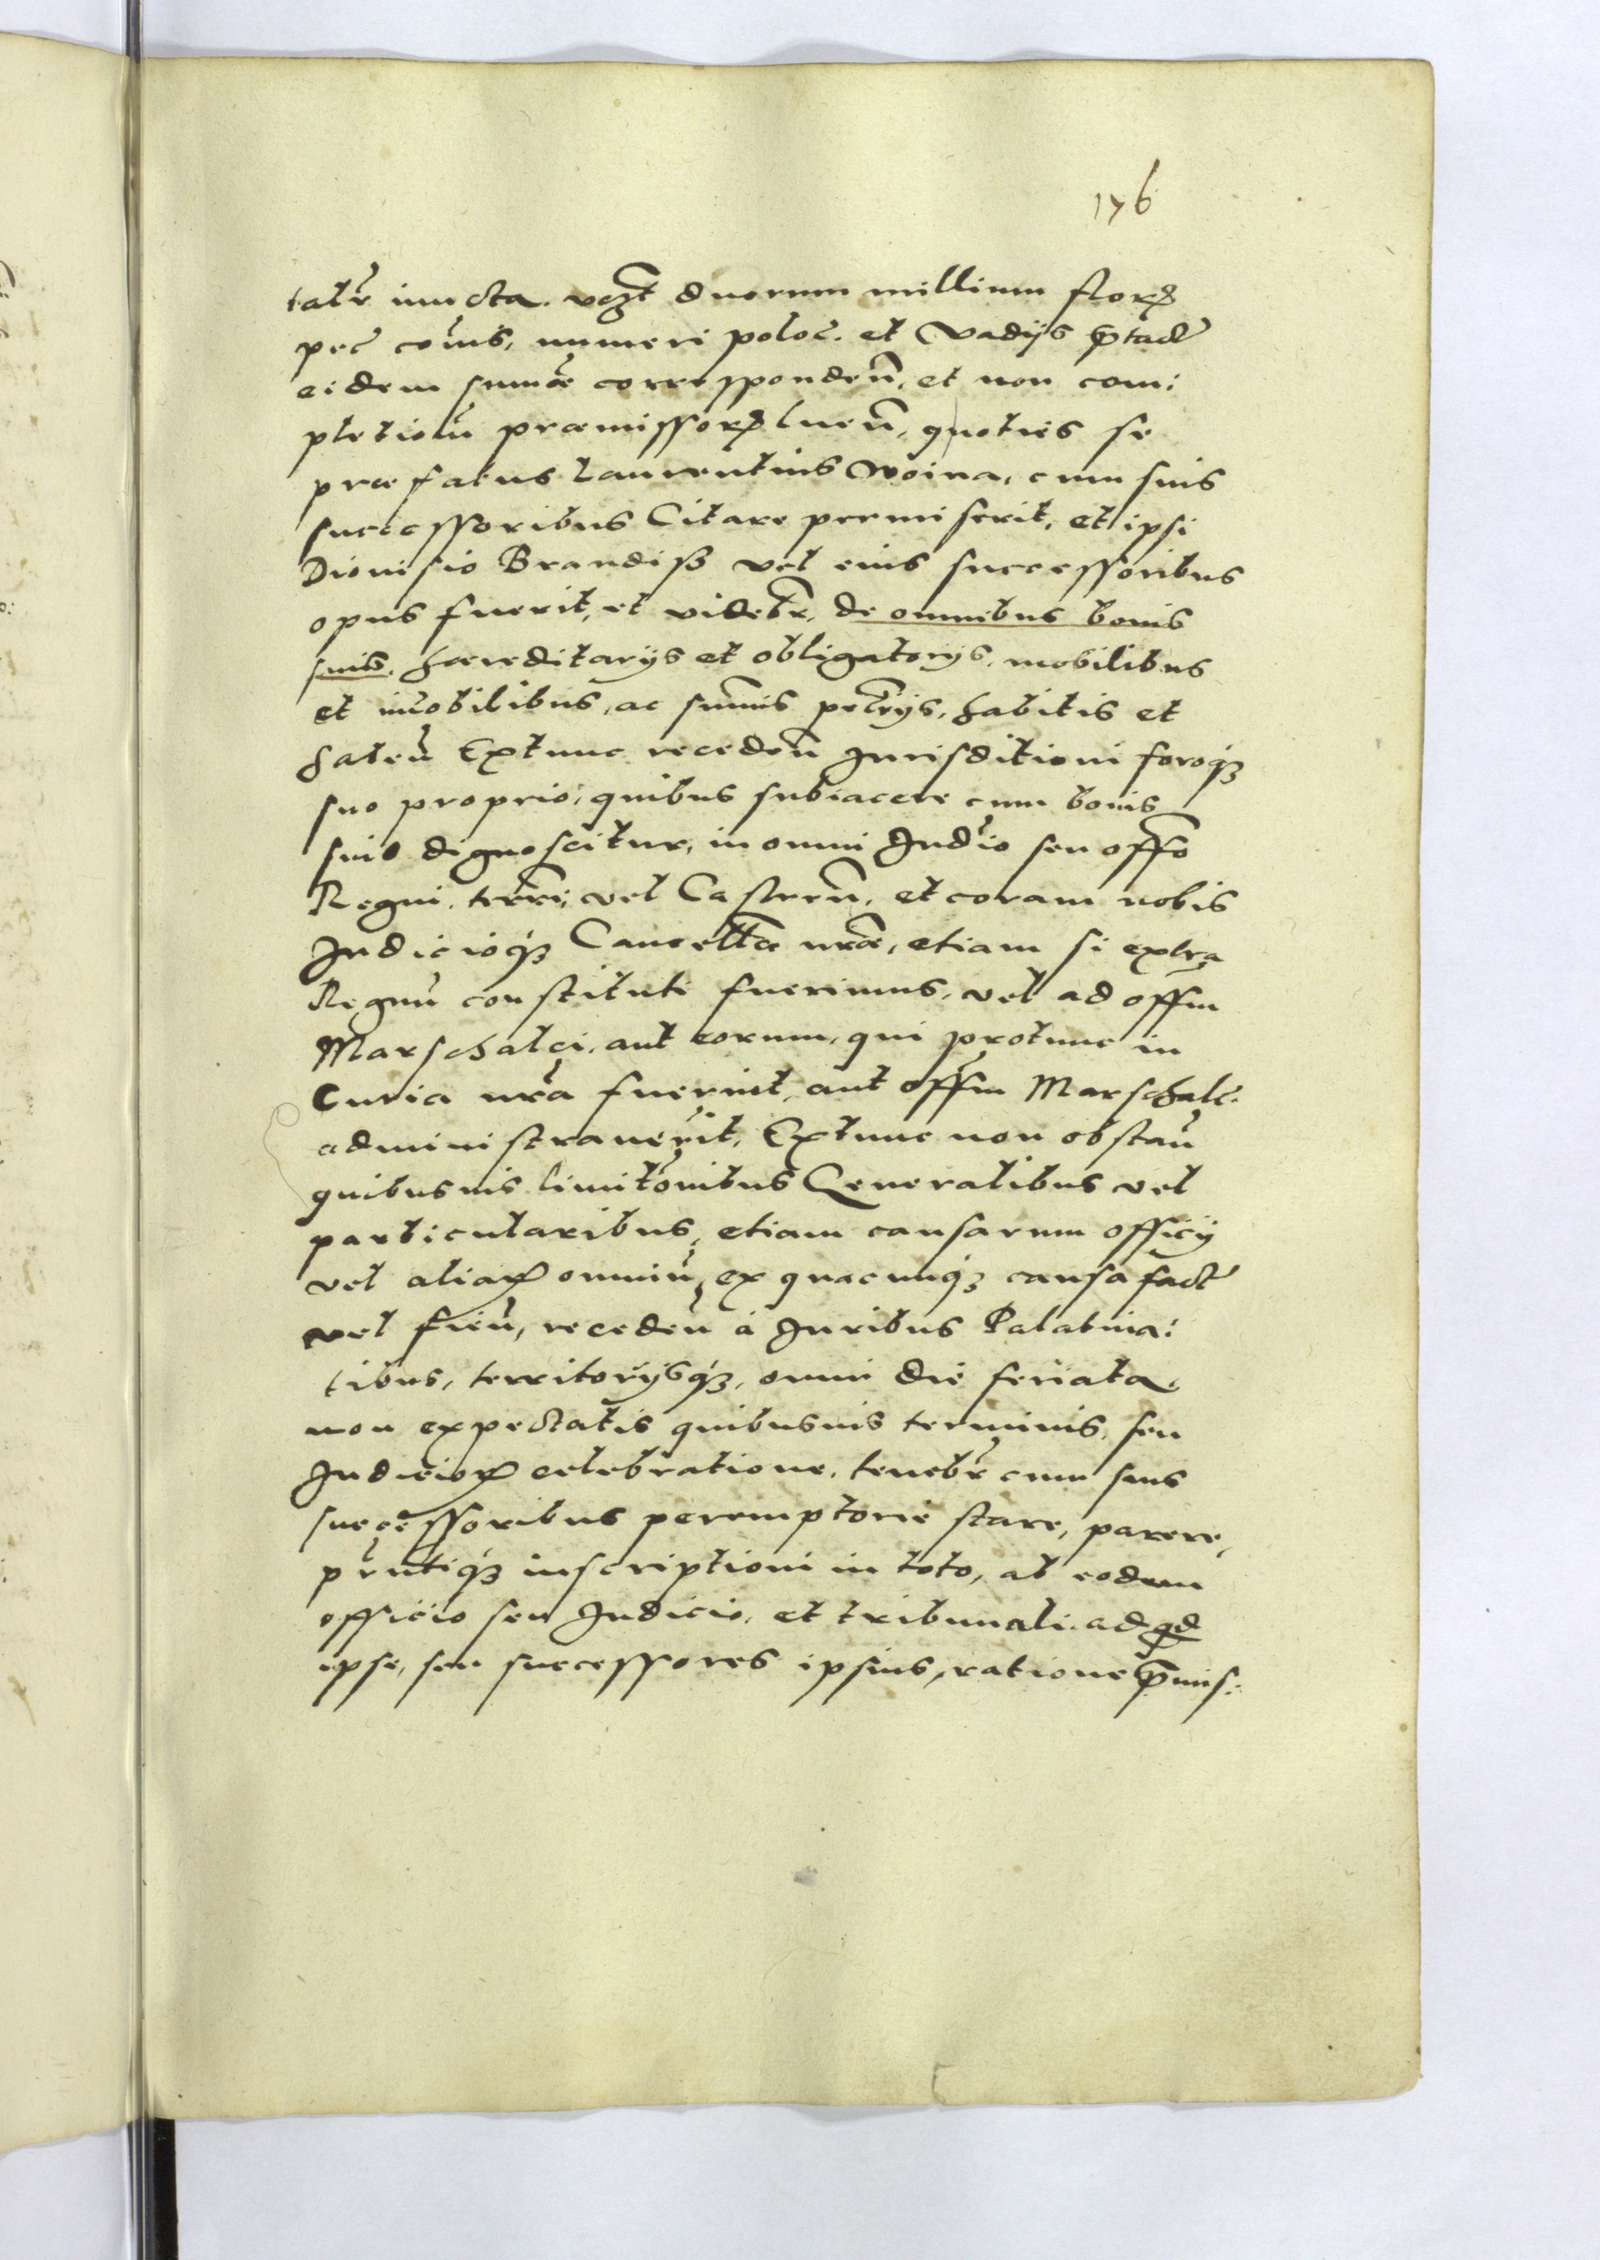 176
talr̃ iuncta. vcz̃t duorum millium florꝝ
pec̃ com̃is, numeri poloc̃. et Vadijs p̃tact̃
eidem sum̃æ correspondeñ, et non com:
pletioñ præmissorꝝ lueñ, quoties se
præfatus Laurentius Woina, cum suis
successoribus Citare permiserit, et ipsi
Dionisio Brandiß vel eius successoribus
opus fuerit, et videbr̃, de omnibus bonis
suis, hæreditarijs et obligatorijs, mobilibus
et im̃obilibus, ac sum̃is pec̃rijs, habitis et
habeñ Extunc recedeñ Jurisditioni foroqꝫ
suo proprio, quibus subiacere cum bonis
suis dignoscitur, in omni Judĩo seu offõ
Regni, terrr̃i, vel Castreñ, et coram nobis
Judicioqꝫ Cancell̃æ nr̃æ, etiam si extra
Regnũ constituti fuerimus, vel ad offm̃
Marschalci, aut eorum, qui protunc in
Curia nr̃a fuerint, aut offm̃ Marschalc̃.
administrauerit, Extunc non obstañ
quibusuis limitõnibus Generalibus vel
particularibus, etiam causarum officij
vel aliaꝝ omniũ, ex quacunqꝫ causa fact̃
vel fieñ, recedeñ à Juribus Palatina:
tibus, territorijsqꝫ, omni die feriata
non expectatis quibusuis terminis, seu
Judicioꝝ celebratione, tenebr̃ cum suis
successoribus peremptorie stare, parere,
pr̃ntiqꝫ inscriptioni in toto, ab eodem
officio seu Judicio, et tribunali, ad qd̃
ipse, seu successores ipsius, ratione p̃mis: